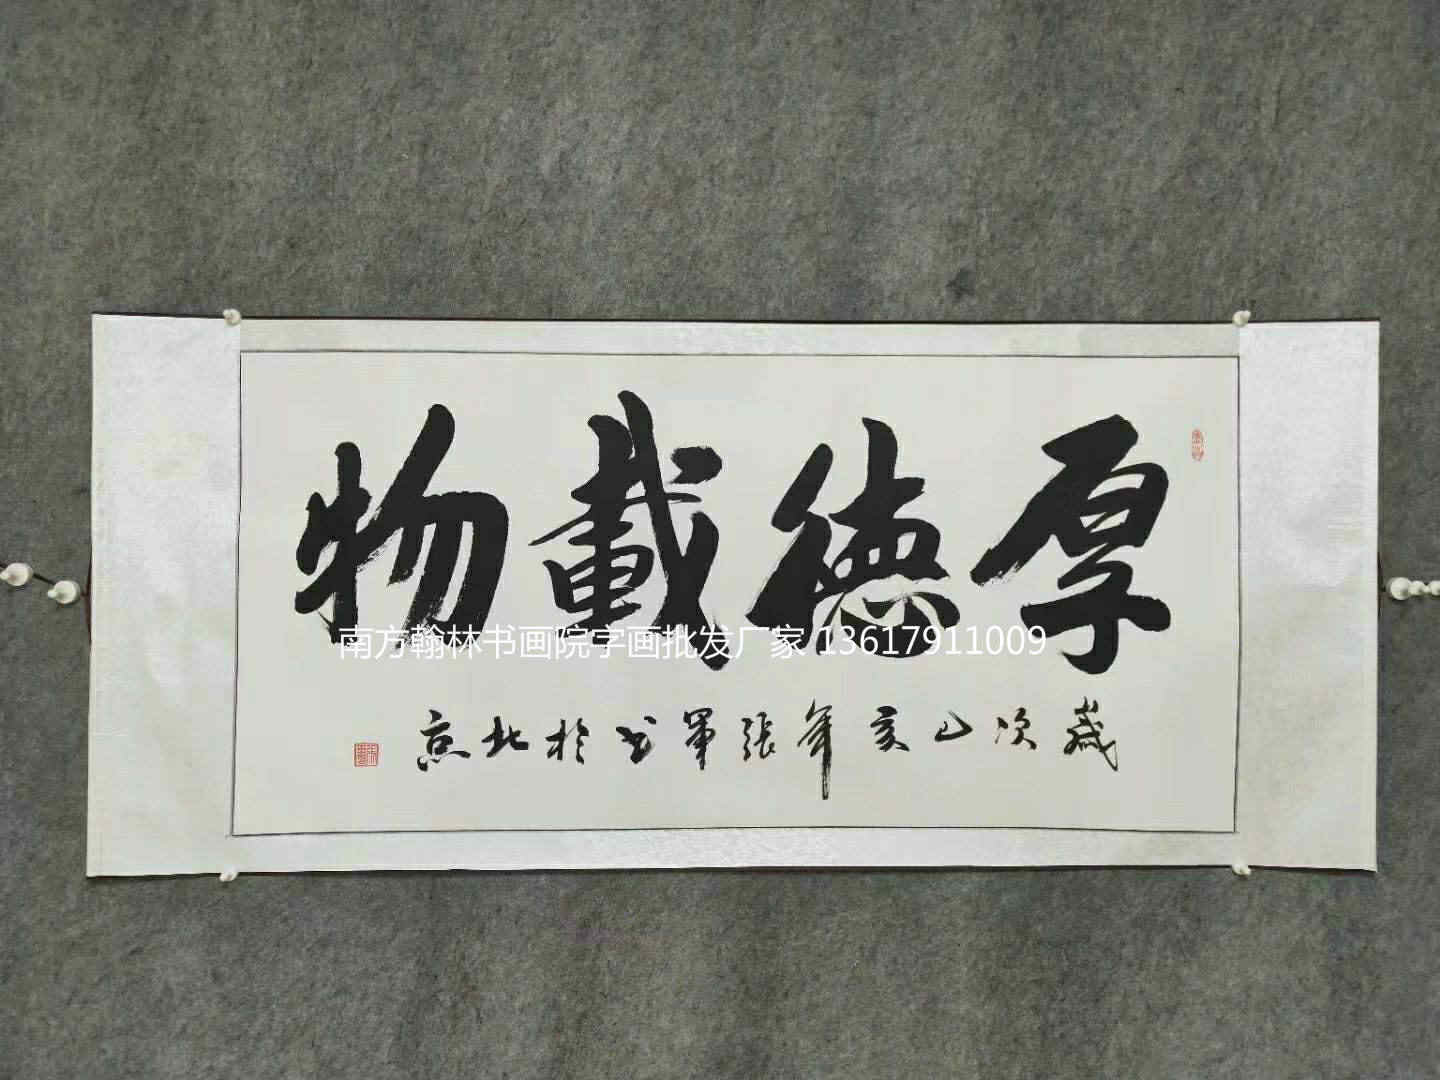 厚德載物
歲次己亥年張軍书於北京
南方翰林书画院字画批发厂家 13617911009